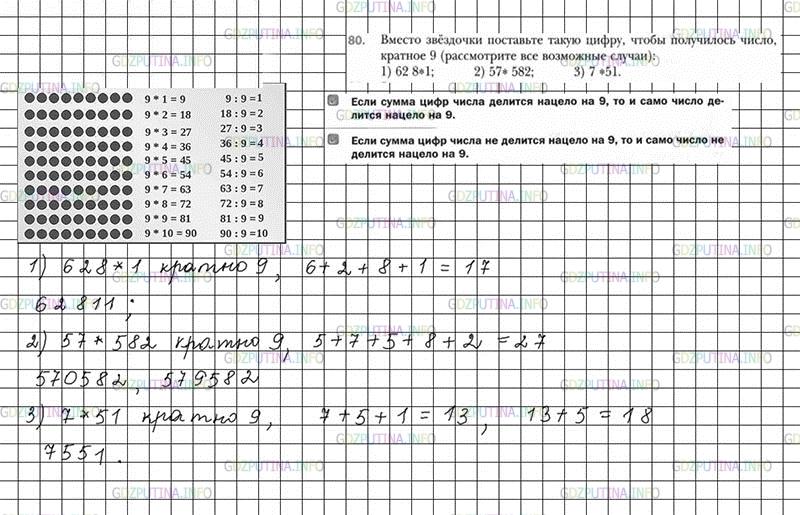 80. Вместо звёздочки поставьте такую цифру, чтобы получилось число,
кратное 9 (рассмотрите все возможные случаи):
1) 62 8*1; 2) 57* 582; 3) 7 *51.
Если сумма цифр числа делится нацело на 9, то и само число де-
лится нацело на 9.
Если сумма цифр числа не делится нацело на 9, то и само число не
делится нацело на 9.
9 * 1 = 9 9 : 9 =1
9 * 2 = 18 18 : 9 =2
9 * 3 = 27 27 : 9 =3
9 * 4 = 36 36 : 9 =4
9 * 5 = 45 45 : 9 = 5
9 * 6 = 54 54 : 9 =6
9 * 7 = 63 63 : 9 =7
9 * 8 = 72 72 : 9 = 8
9 * 9 = 81 81 : 9 = 9
9 * 10 = 90 90 : 9 =10
1) 628*1 кратно 9, 6+2+8+1 = 17
62811;
2) 57*582 кратно 9, 5+7+5+8+2 = 27
570582, 579582
3) 7*51 кратно 9, 7+5+1 = 13, 13+5 = 18
7551.
GDZPUTINA.INFO